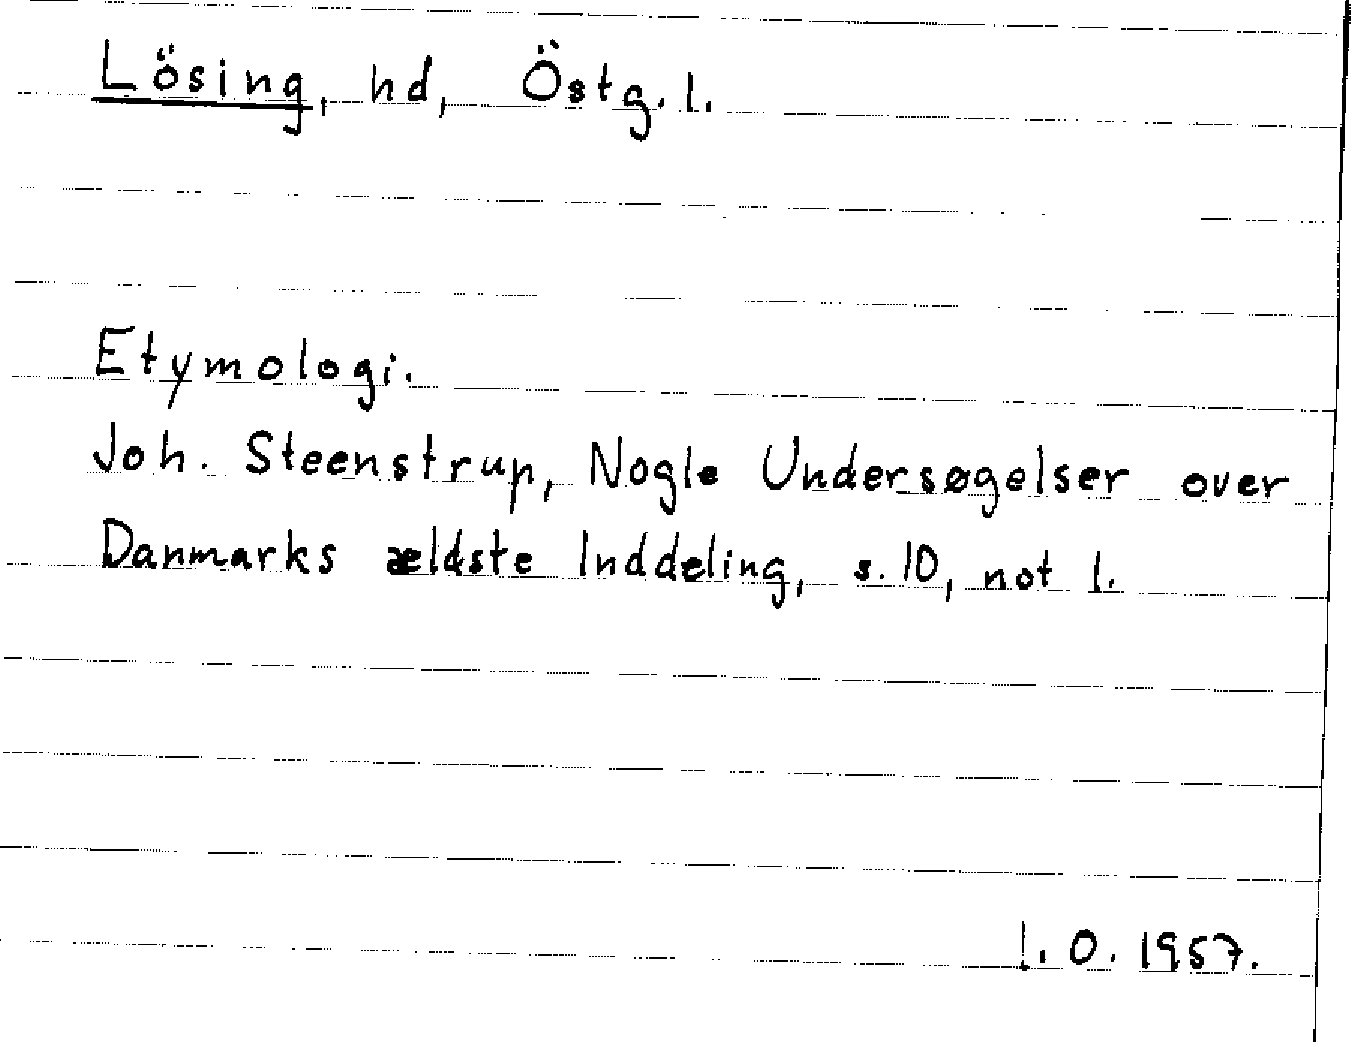 Lösing, hd, Östg. l.
Etymologi.
Joh. Steenstrup, Nogle Undersøgelser over
Danmarks ældste Inddeling, s. 10, not 1.
I. O. 1957.